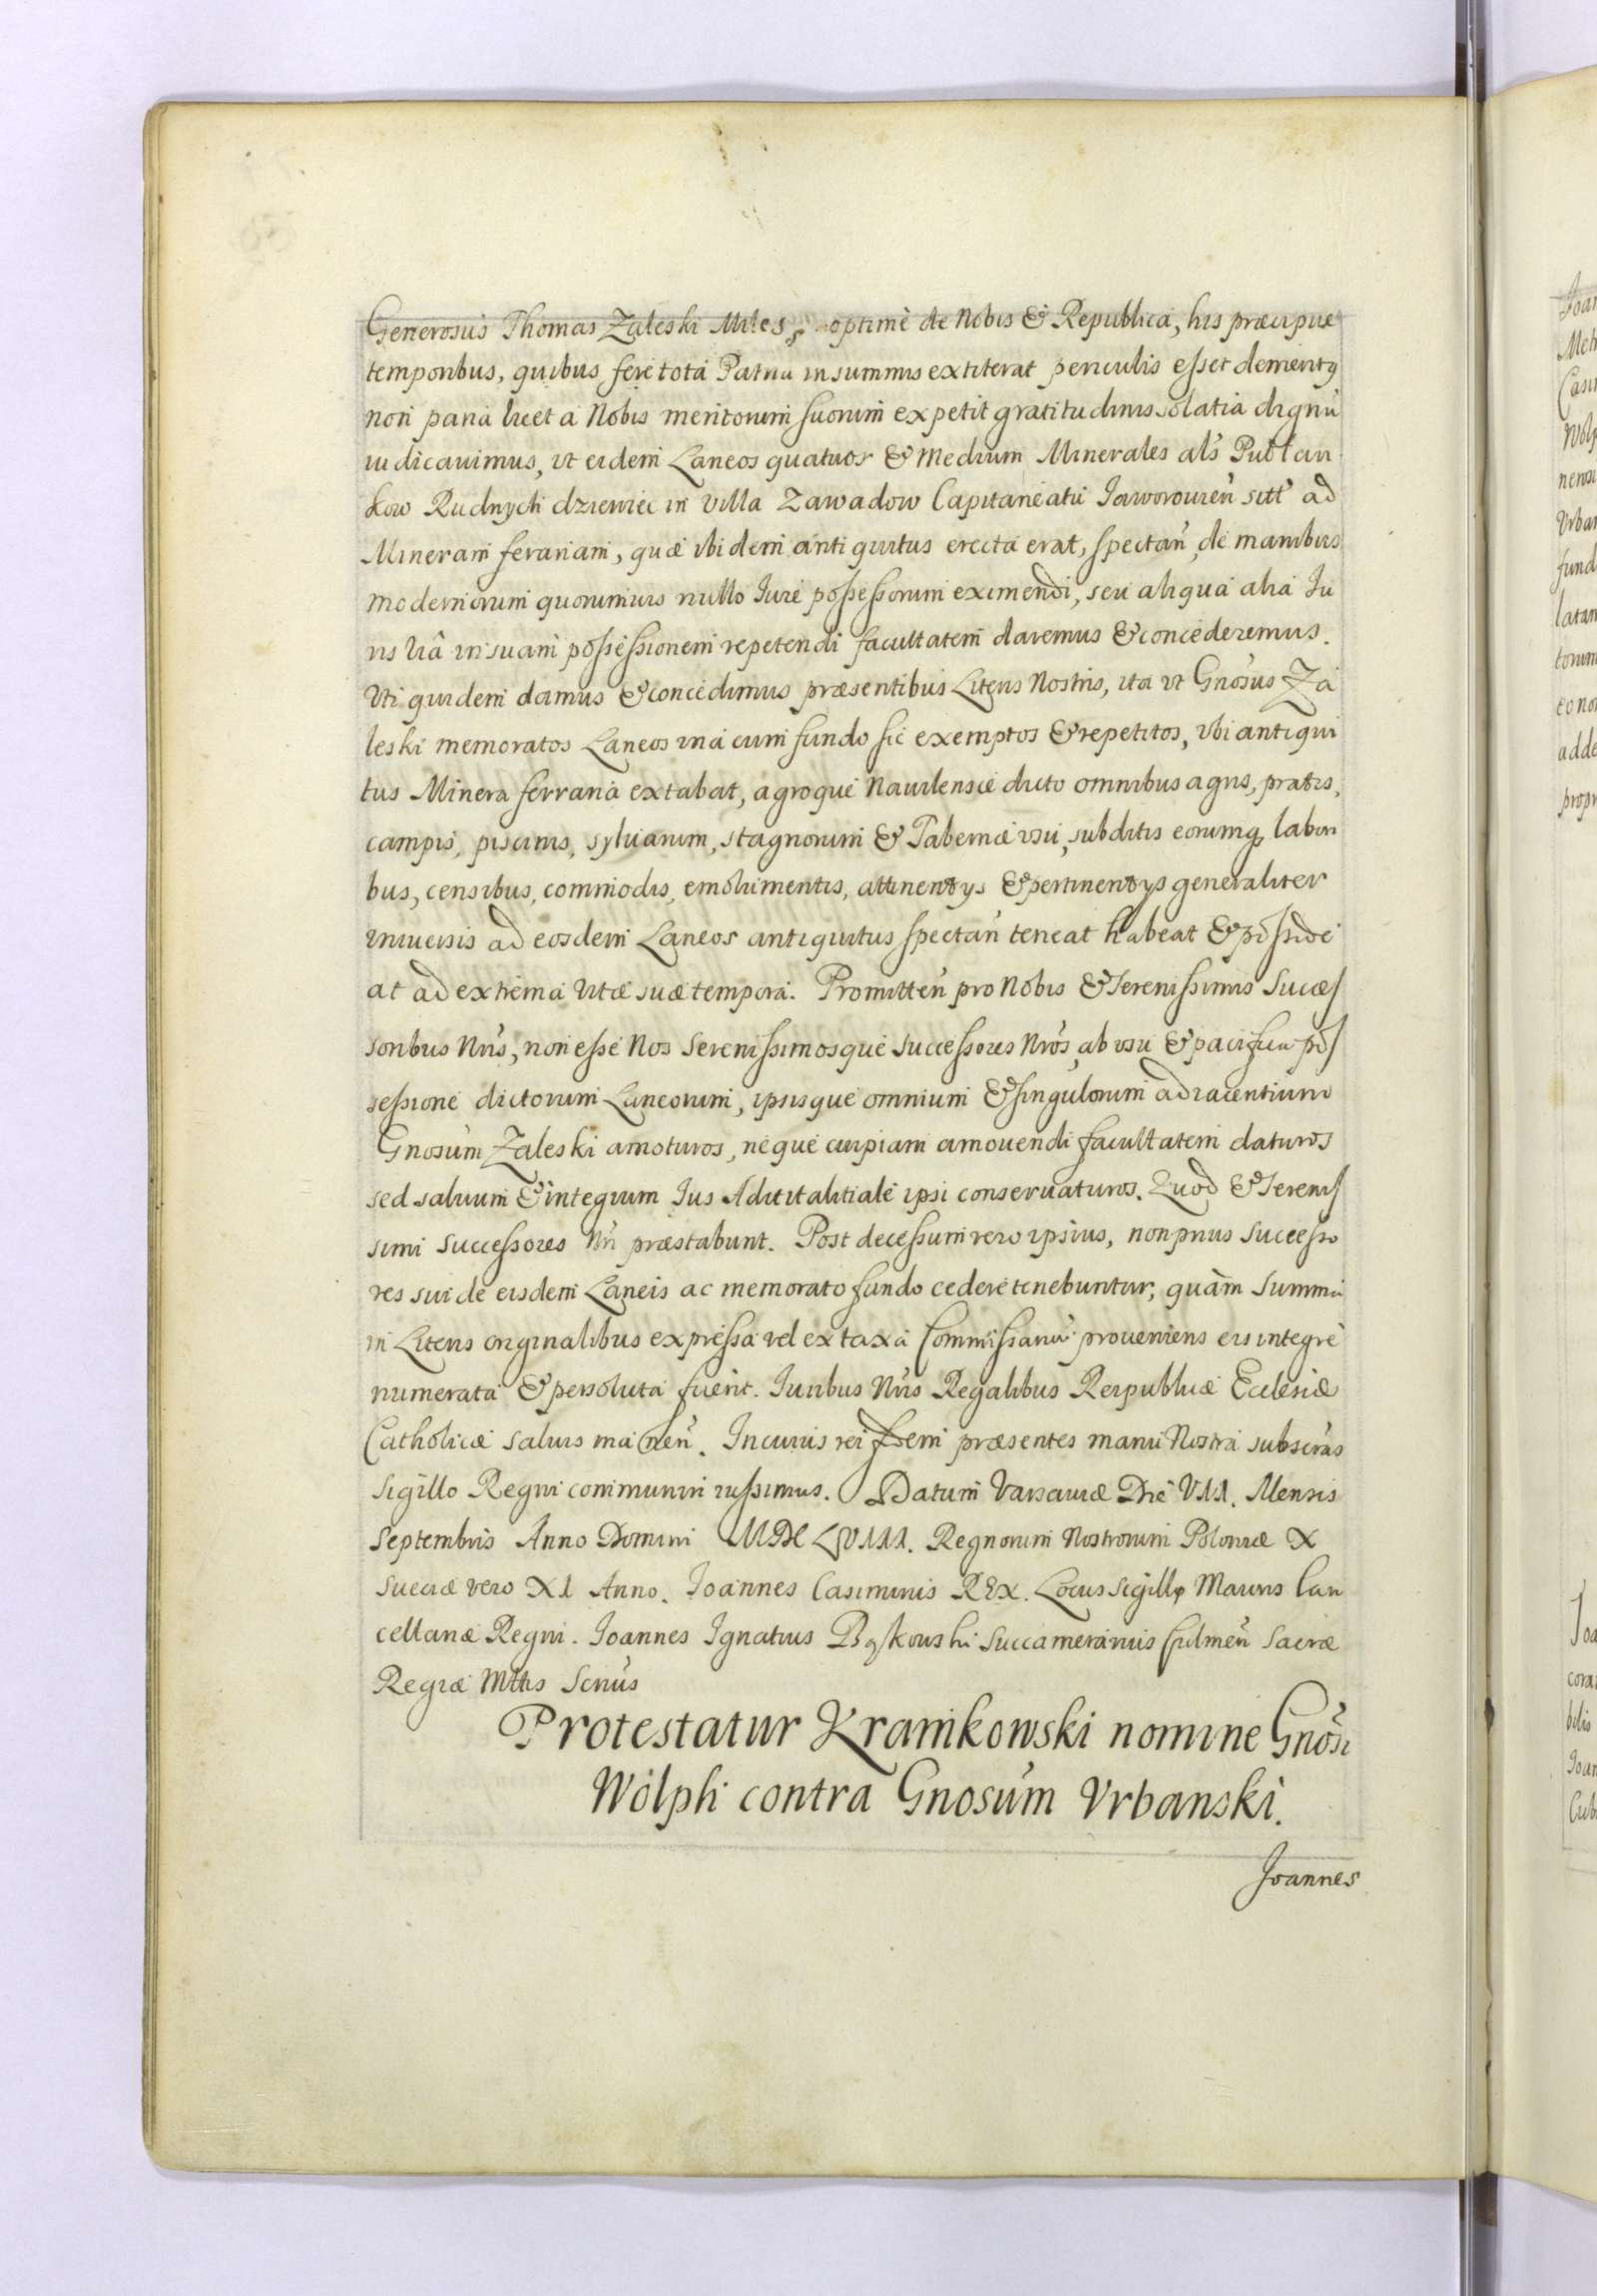 Generosus Thomas Zaleski Miles, optimè de Nobis & Republica, his præcipue
temporibus, quibus fere tota Patria in summis extiterat periculis esset demeritꝯ
non paria licet a Nobis meritorum suorum expetit gratitudinis solatia dignũ
iudicauimus, vt eidem Laneos quatuor & Medium Minerales als Pułłan
kow Rudnych dziewiec in Villa Zawadow Capitaneatũ Jaworouieñ sitt ad
Mineram ferariam, quæ ibidem antiquitus erecta erat, spectañ, de manibus
modernorum quorumuis nullo Iure possessorum eximendi, seu aliqua alia Iu
ris via in suam possessionem repetendi facultatem daremus & concederemus.
Uti quidem damus & concedimus præsentibus Literis Nostris, ita vt Gnosus Za
leski memoratos Laneos una cum fundo sic exemptos & repetitos, vbi antiqui
tus Minera ferraria extabat, agroque Nawilensie dicto omnibus agris, pratis,
campis, piscinis, syluarum, stagnorum & Tabernæ vsu, subditis eorumq labori
bus, censibus, commodis, emolumentis, attinentys & pertinentys generaliter
vniuersis ad eosdem Laneos antiquitus spectañ teneat habeat & posside
at ad extrema Vitæ suæ tempora. Promitteñ pro Nobis & Serenissimis Succes
soribus Nrĩs, non esse Nos Serenissimosque successores Nrõs, ab vsu & pacifica pos
sessione dictorum Laneorum, ipsisque omnium & singulorum adiacentium
Gnosum Zaleski amoturos, neque cuipiam amouendi facultatem daturos
sed saluum & integrum Ius Aduitalitiale ipsi conseruaturos. Quod & Serenis
simi Successores Nrĩ præstabunt. Post decessum vero ipsius, non prius successo
res sui de eisdem Laneis ac memorato fundo cedere tenebuntur, quàm Summa
in Literis originalibus expressa vel ex taxa Commissariũ proueniens eis integrè
numerata & persoluta fuerit. Iuribus Nrĩs Regalibus Reipublicæ Ecclesiæ
Catholicæ saluis maneñ. In cuius rei fidem præsentes manu Nostra subscras
Sigillo Regni communiri iussimus. Datum Varsauiæ Die VII. Mensis
Septembris Anno Domini MDCLVIII. Regnorum Nostrorum Poloniæ X
Sueciæ vero XI Anno. Joannes Casimirus REX. Locus sigilli Maioris Can
cellariæ Regni. Joannes Ignatius Bąkowski Succamerarius Culmeñ Sacræ
Regiæ Mttis Scrius
Protestatur Kramkowski nomine Gnosi
Wolph contra Gnosum Vrbanski.
Joannes